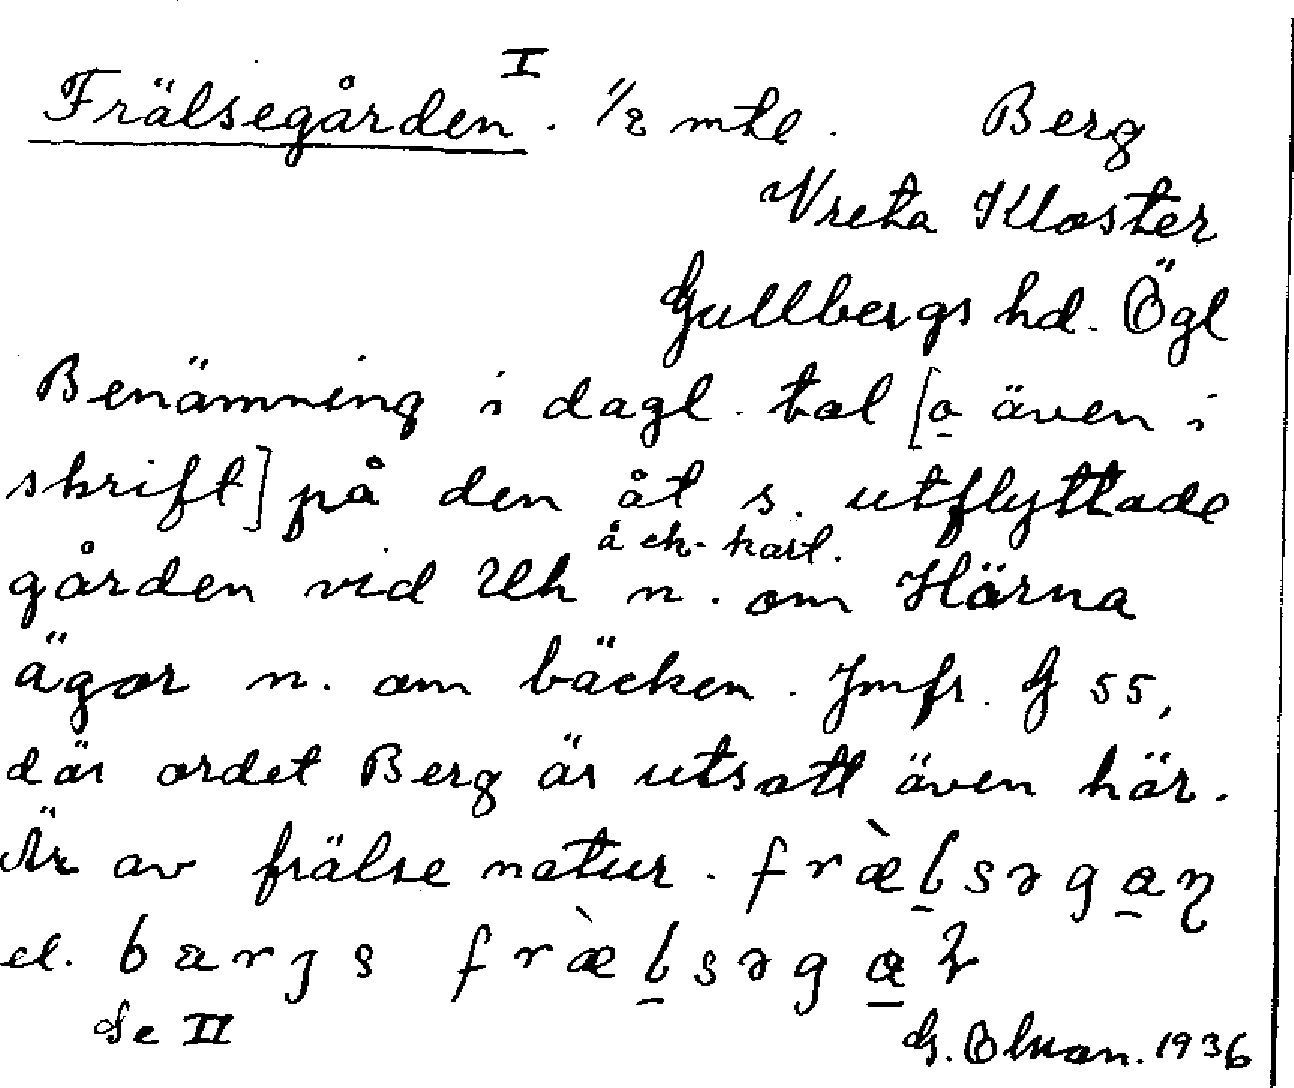 I
Frälsegården. 1/2 mtl. Berg
Vreta Kloster
Gullbergs hd. Ögl
Benämning i dagl. tal [o även i
skrift] på den åt s. utflyttade
å ek. kart.
gården vid Uh n. om Härna
ägor n. om bäcken. Jmfr. G 55,
där ordet Berg är utsatt även här.
Är av frälse natur.
el.
Se II G. Olsson. 1936